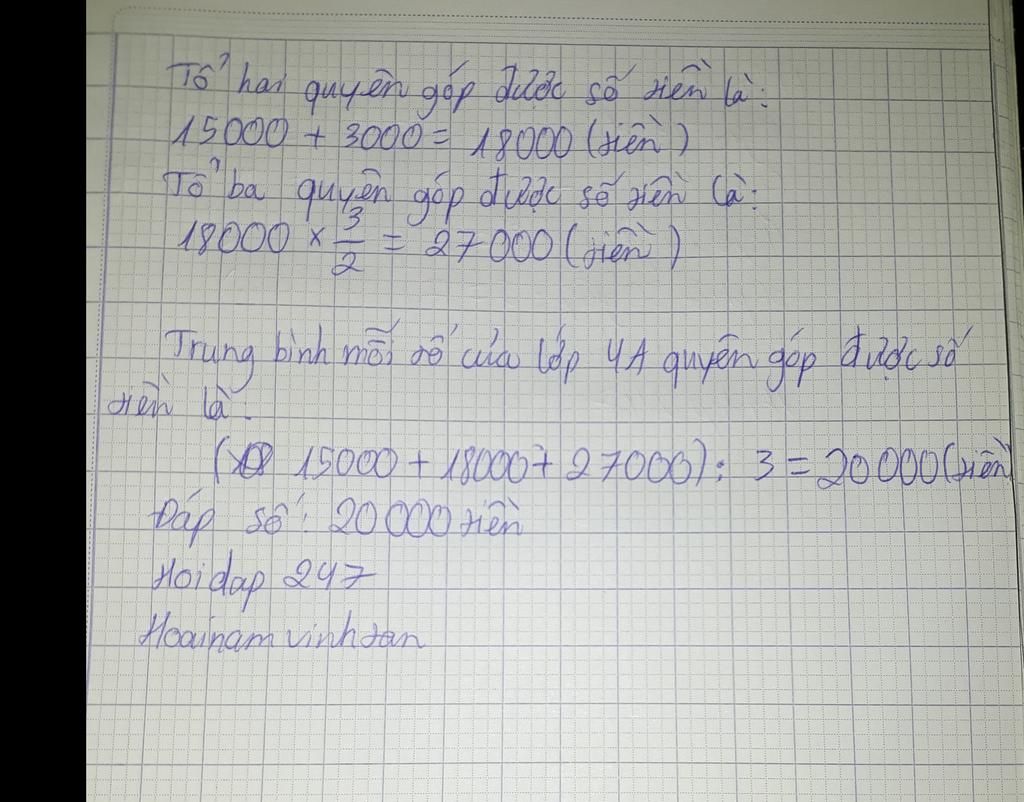 Tổ hai quyên góp được số tiền là:
15000 + 3000 = 18000 (tiền)
Tổ ba quyên góp được số tiền là:
18000 × 3/2 = 27000 (tiền)
Trung bình mỗi tổ của lớp 4A quyên góp được số
tiền là.
( 15000 + 18000 + 27000) : 3 = 20000 (tiền)
Đáp số: 20000 tiền
Hoidap 247
Hoainam vinhtan